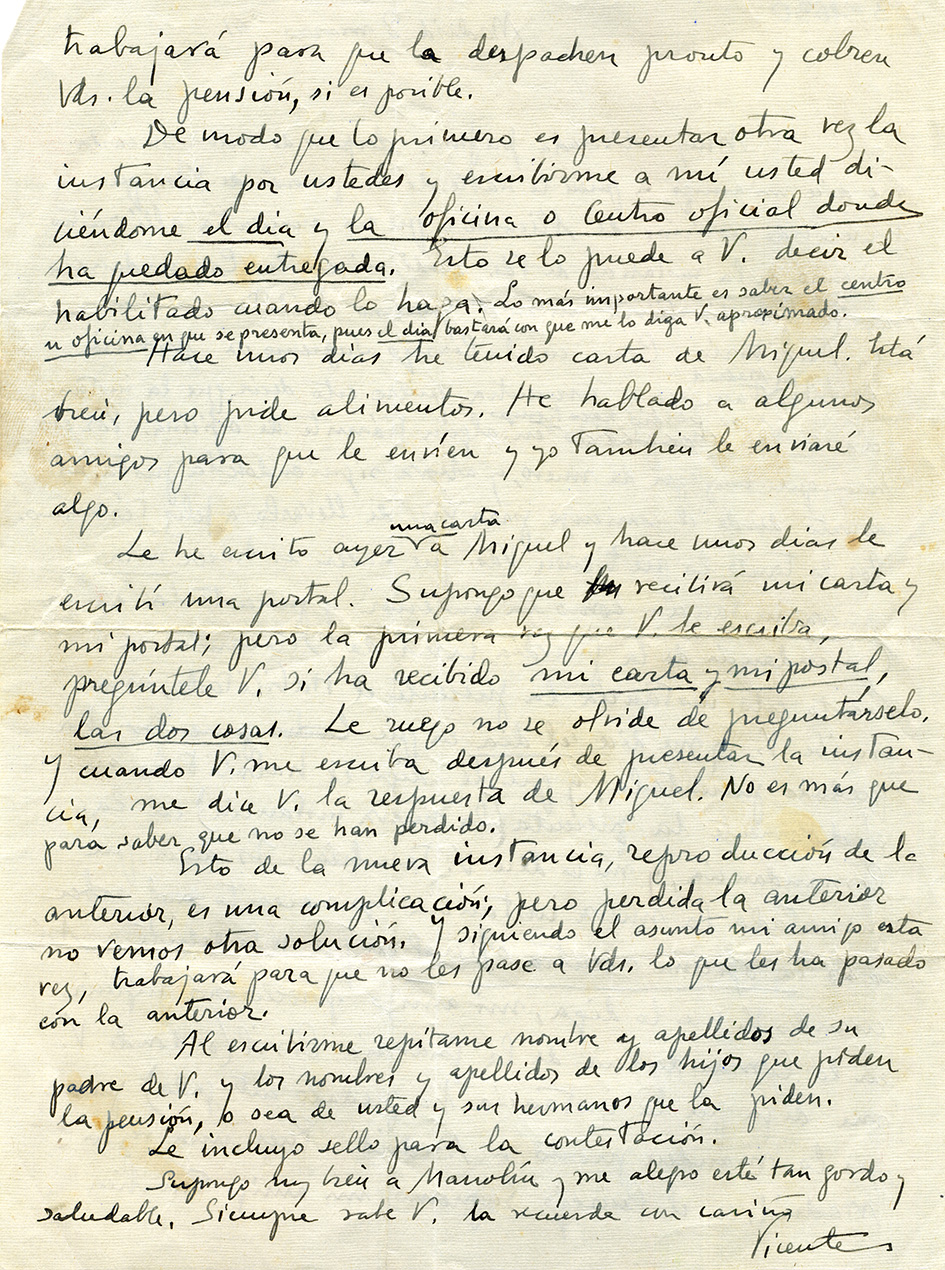 trabajará para que la despachen pronto y cobren
Vds. la pensión, si es posible.
De modo que lo primero es presentar otra vez la
instancia por ustedes y escribirme a mí usted di-
ciéndome el día y la oficina o Centro oficial donde
ha quedado entregada. Esto se lo puede a V. decir el
habilitado cuando lo haga. Lo más importante es saber el centro
u oficina en que se presenta, pues el día bastará con que me lo diga V. aproximado.
Hace unos días he tenido carta de Miguel. Está
bien, pero pide alimentos. He hablado a algunos
amigos para que le envíen y yo también le enviaré
algo.
una carta
Le he escrito ayer a Miguel y hace unos días le
escribí una postal. Supongo que recibirá mi carta y
mi postal; pero la primera vez que V. le escriba,
pregúntele V. si ha recibido mi carta y mi postal,
las dos cosas. Le ruego no se olvide de preguntárselo.
Y cuando V. me escriba después de presentar la instan-
cia, me dice V. la respuesta de Miguel. No es más que
para saber que no se han perdido.
Esto de la nueva instancia, reproducción de la
anterior, es una complicación; pero perdida la anterior
no vemos otra solución. Y siguiendo el asunto mi amigo esta
vez, trabajará para que no les pase a Vds. lo que les ha pasado
con la anterior.
Al escribirme repítame nombre y apellidos de su
padre de V. y los nombres y apellidos de los hijos que piden
la pensión, o sea de usted y sus hermanos que la piden.
Le incluyo sello para la contestación.
Supongo muy bien a Manolín y me alegro esté tan gordo y
saludable. Siempre sabe V. la recuerda con cariño
Vicente